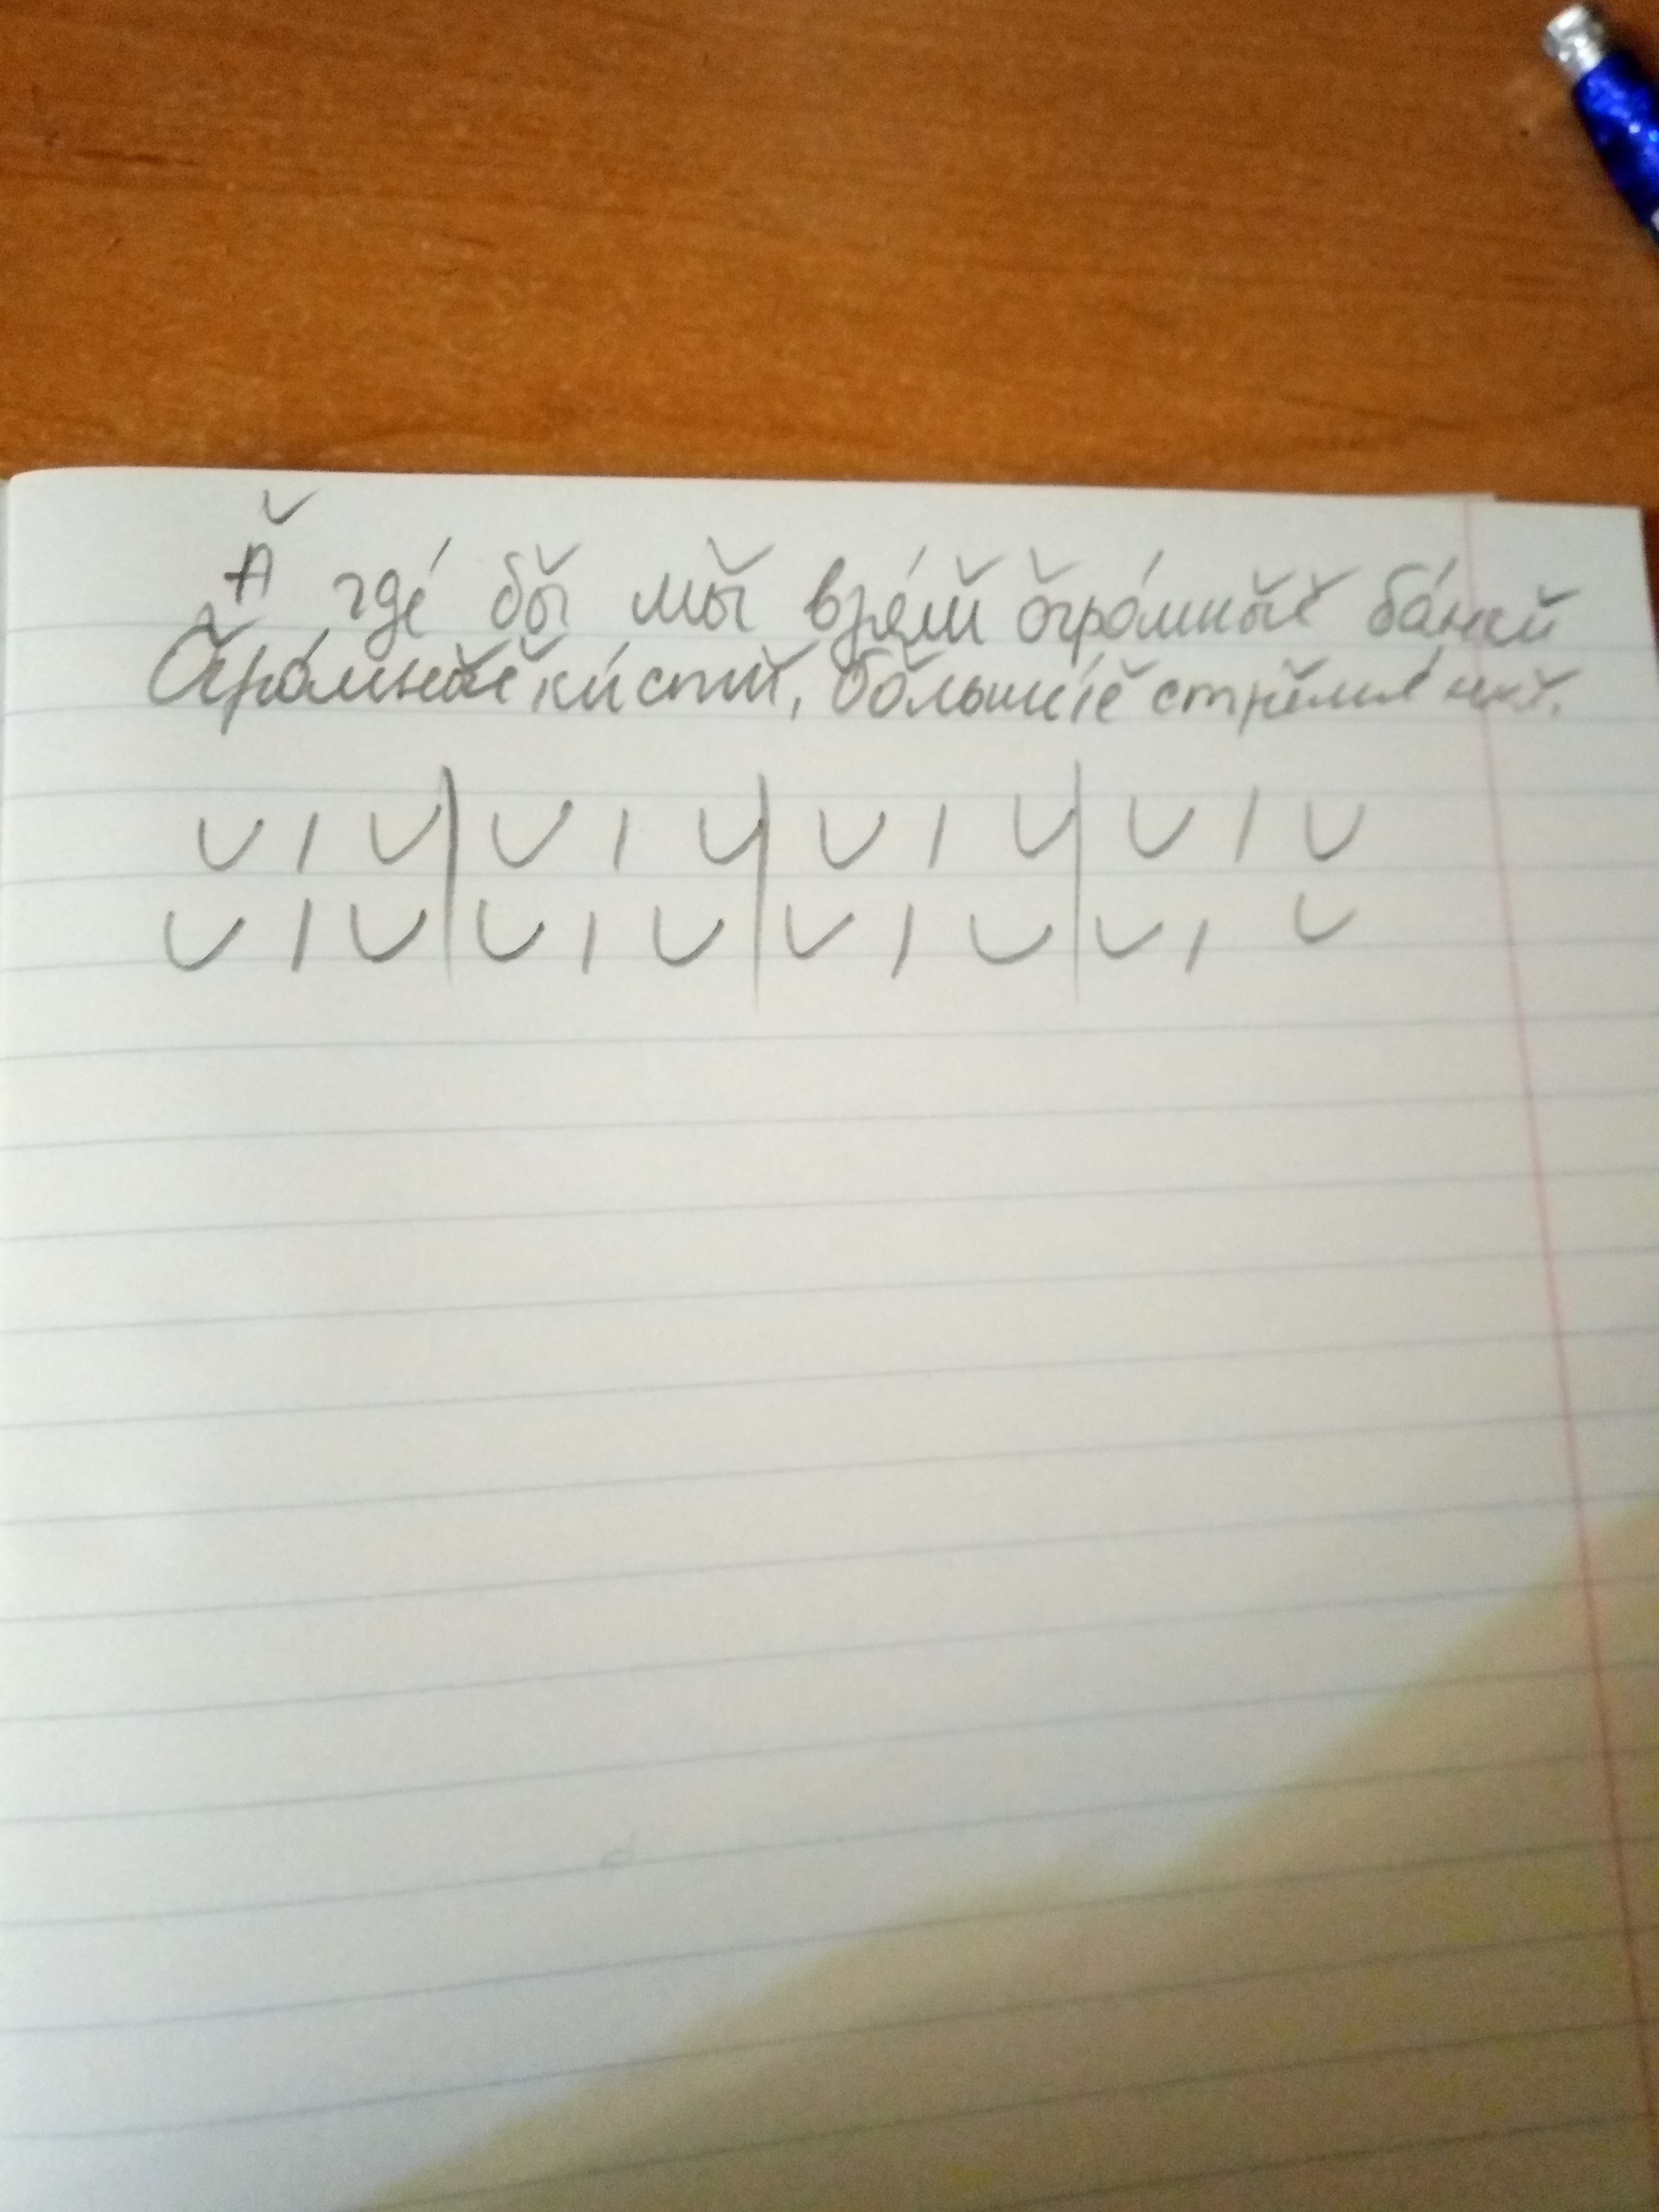 Ӑ где́ бы̆ мы̆ взя́лӣ̆ о̆гро́мны̆ӗ ба́нкӣ̆
О̆гро́мны̆ӗ ки́стӣ̆, бо̆льши́ӗ стрӗмя́нкӣ̆.
∪ / ∪ | ∪ / ∪ | ∪ / ∪ | ∪ / ∪
∪ / ∪ | ∪ / ∪ | ∪ / ∪ | ∪ / ∪